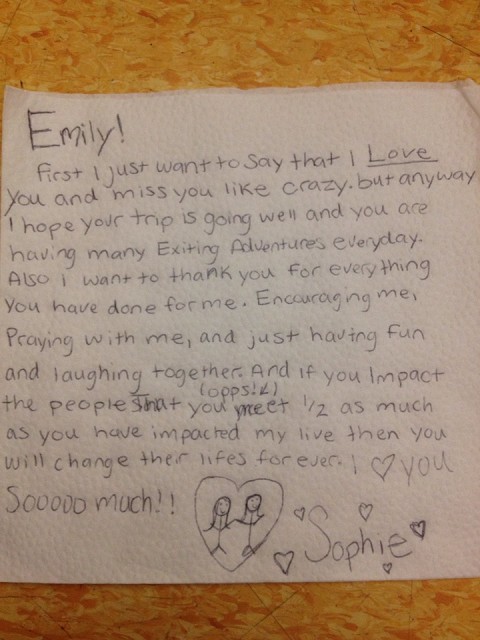 Emily!
First I just want to say that I Love
you and miss you like crazy. but anyway
I hope your trip is going well and you are
having many Exiting Adventures everyday.
Also I want to thank you for everything
You have done for me. Encouraging me,
Praying with me, and just having fun
and laughing together. And if you Impact
(opps!)
the people that you meet 1/2 as much
as you have impacted my live then you
will change their lifes for ever. I ♡ you
Sooooo much!!
Sophie